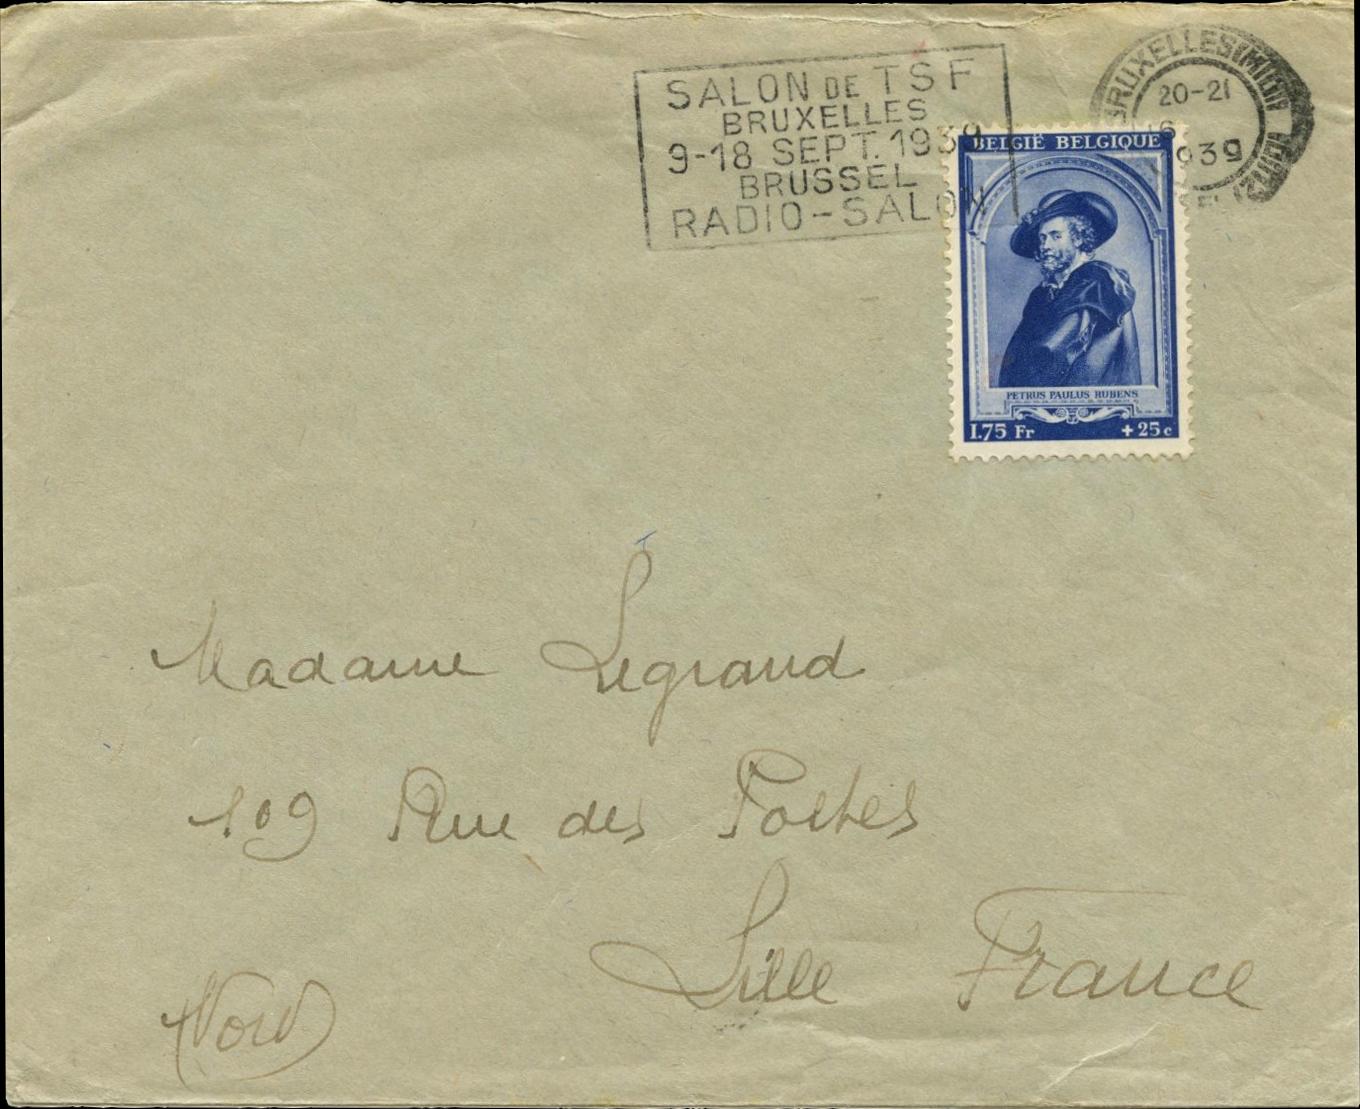 SALON DE TSF
BRUXELLES
9-18 SEPT. 1939
BRUSSEL
RADIO-SALON
BRUXELLES (MIDI)
20-21
1939
BELGIË BELGIQUE
PETRUS PAULUS RUBENS
1.75 Fr +25c
Madame Legrand
109 Rue des Postes
Lille France
(Nord)